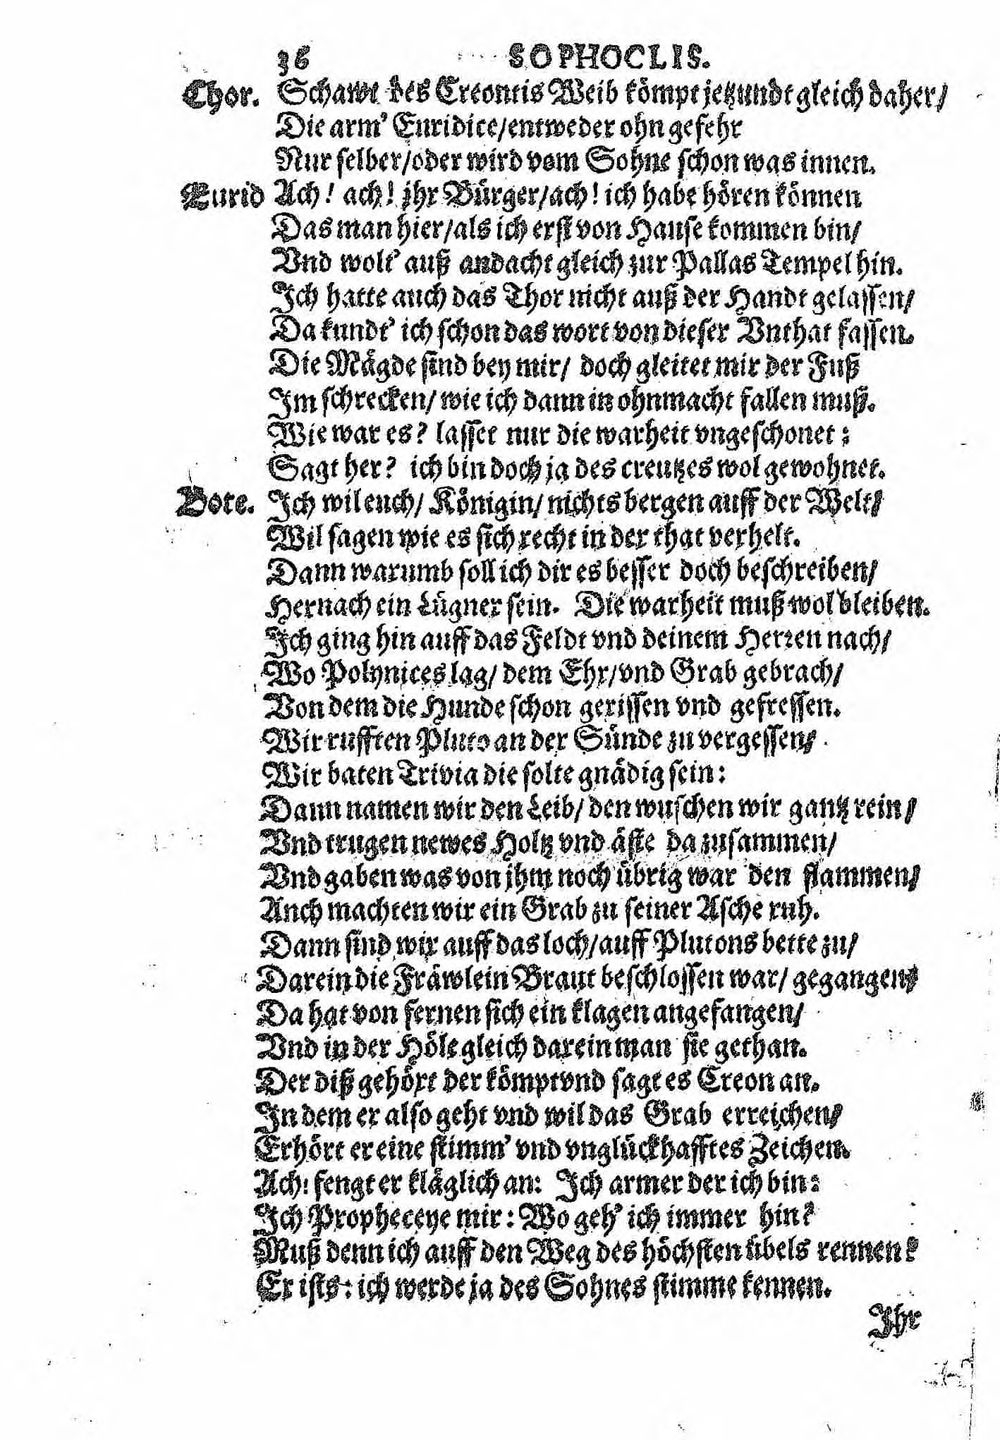 36 SOPHOCLIS.
Chor. Schawt des Creontis Weib kömpt jetzundt gleich daher/
Die arm' Euridice/entweder ohn gefehr
Nur selber/oder wird vom Sohne schon was innen.
Eurid Ach! ach! jhr Bürger/ach! ich habe hören können
Das man hier/als ich erst von Hause kommen bin/
Vnd wolt' auß andacht gleich zur Pallas Tempel hin.
Ich hatte auch das Thor nicht auß der Handt gelassen/
Da kundt' ich schon das wort von dieser Vnthat fassen.
Die Mägde sind bey mir/ doch gleitet mir der Fuß
Im schrecken/ wie ich dann in ohnmacht fallen muß.
Wie war es? lasset nur die warheit vngeschonet:
Sagt her? ich bin doch ja des creutzes wol gewohnet.
Bote. Ich wil euch/ Königin/ nichts bergen auff der Welt/
Wil sagen wie es sich recht in der that verhelt.
Dann warumb soll ich dir es besser doch beschreiben/
Hernach ein Lügner sein. Die warheit muß wol bleiben.
Ich ging hin auff das Feldt vnd deinem Herren nach/
Wo Polynices lag/ dem Ehr/vnd Grab gebrach/
Von dem die Hunde schon gerissen vnd gefressen.
Wir rufften Pluto an der Sünde zu vergessen/
Wir baten Trivia die solte gnädig sein:
Dann namen wir den Leib/ den wuschen wir gantz rein/
Vnd trugen newes Holtz vnd äste da zusammen/
Vnd gaben was von jhm noch übrig war den flammen/
Auch machten wir ein Grab zu seiner Asche ruh.
Dann sind wir auff das loch/auff Plutons bette zu/
Darein die Fräwlein Braut beschlossen war/ gegangen/
Da hat von fernen sich ein klagen angefangen/
Vnd in der Höle gleich darein man sie gethan.
Der diß gehört der kömpt vnd sagt es Creon an.
In dem er also geht vnd wil das Grab erreichen/
Erhört er eine stimm' vnd vnglückhafftes Zeichen.
Ach! fengt er kläglich an: Ich armer der ich bin:
Ich Propheceye mir: Wo geh' ich immer hin?
Muß denn ich auff den Weg des höchsten übels rennen?
Er ists: ich werde ja des Sohnes stimme kennen.
Ihr